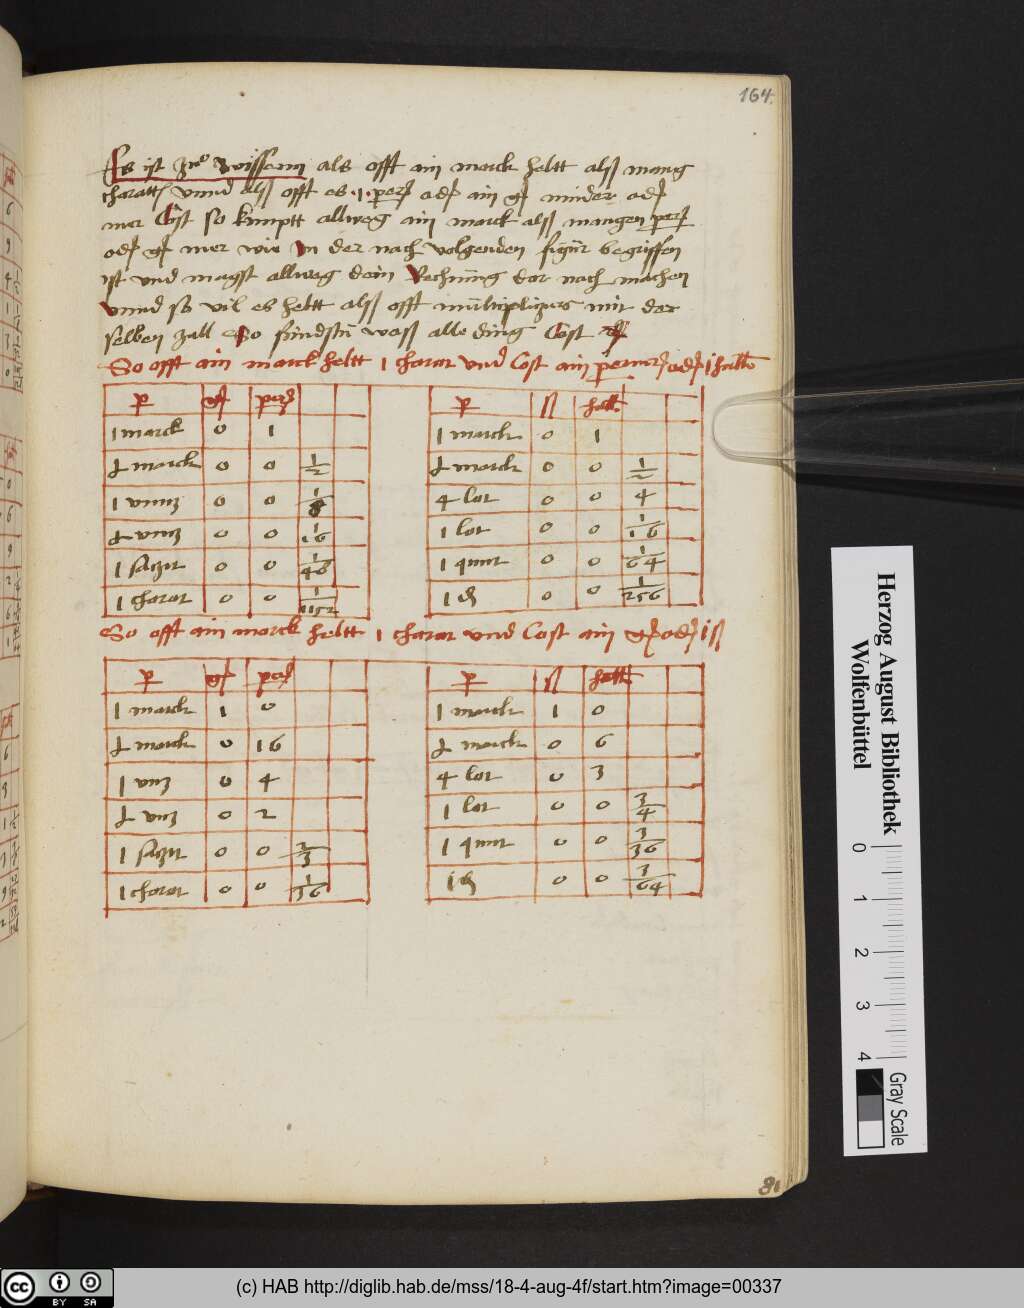 164
Es ist zuo wissenn als offt ain marck heltt alß mang
charatt vnnd alß offt es 1 per od ain gß minder od
mer Cost so kimptt allweg ain marck alß mangen per
od gß mer wie In der nach volgenden figur begriffen
ist vnd magst allweg dein Rechnung dar nach machen
vnnd so vil es heltt alß offt multiplizirs mit der
selben zall So findstu wass alle ding Cost
So offt ain marck heltt 1 charat vnd Cost ain perner od 1 hall
per
1 marck 0 1
marck 0 0 1/2
1 vnntz 0 0 1/8
vntz 0 0 1/16
1 satzit 0 0 1/48
1 charat 0 0 1/1152
ß hall
1 marck 0 1
marck 0 0 1/2
4 lot 0 0 4
1 lot 0 0 1/16
1 quint 0 0 1/64
1 0 0 1/256
So offt ain marck heltt 1 charat vnd Cost ain gß od 1 ß
per
1 marck 1 0
marck 0 16
1 vntz 0 4
vntz 0 2
1 satzit 0 0 2/3
1 charat 0 0 1/36
ß hall
1 marck 1 0
marck 0 6
4 lot 0 3
1 lot 0 0 3/4
1 quint 0 0 3/36
1 0 0 3/64
81
Herzog August Bibliothek
Wolfenbüttel
0 1 2 3 4
Gray Scale
cc BY SA
(c) HAB http://diglib.hab.de/mss/18-4-aug-4f/start.htm?image=00337